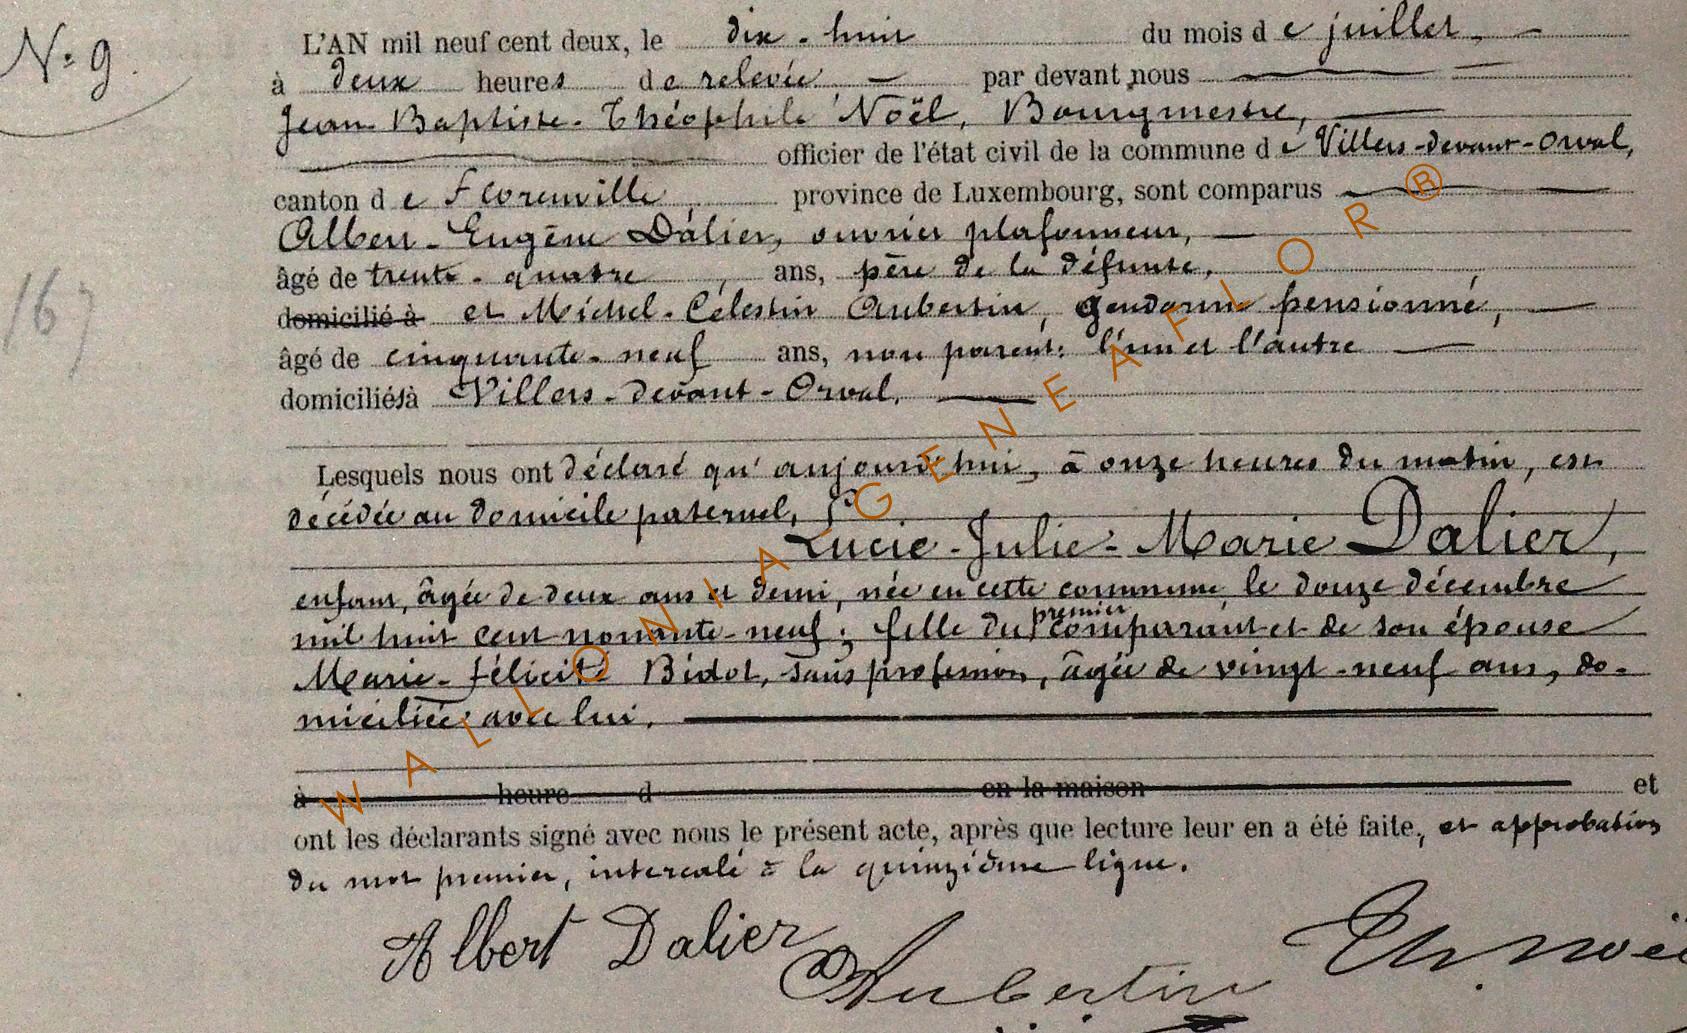 N° 9.
167
L'AN mil neuf cent deux, le dix-huit du mois de juillet,
à deux heures de relevée par devant nous
Jean-Baptiste-Théophile Noël, Bourgmestre,
officier de l'état civil de la commune de Villers-devant-Orval,
canton de Florenville, province de Luxembourg, sont comparus
Albert-Eugène Dalier, ouvrier plafonneur,
âgé de trente-quatre ans, père de la défunte,
domicilié à et Michel-Célestin Aubertin, gendarme pensionné,
âgé de cinquante-neuf ans, non parent: l'un et l'autre
domiciliés à Villers-devant-Orval,
Lesquels nous ont déclaré qu'aujourd'hui, à onze heures du matin, est
décédée au domicile paternel,
Lucie-Julie-Marie Dalier,
enfant, âgée de deux ans et demi, née en cette commune, le douze décembre
mil huit cent nonante-neuf; fille du premier comparant et de son épouse
Marie-Félicité Bidot, sans profession, âgée de vingt-neuf ans, do-
miciliée avec lui.
à heure d en la maison et
ont les déclarants signé avec nous le présent acte, après que lecture leur en a été faite, et approbation
du mot premier, intercalé à la quinzième ligne.
Albert Dalier
Aubertin
Th Noë
WALLONIA GENEAFLOR®